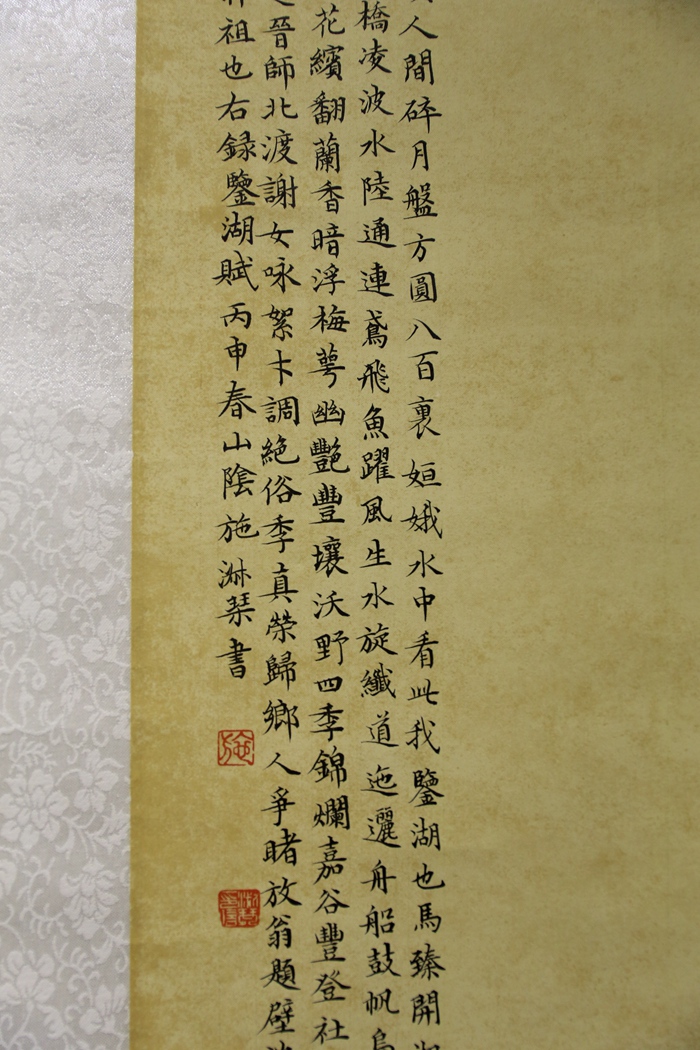 人間碎月盤方圓八百裏姮娥水中看此我鑒湖也馬臻開湖
橋凌波水陸通連鳶飛魚躍風生水旋纖道迤邐舟船鼓帆烏
花繽翻蘭香暗浮梅萼幽艷豐壤沃野四季錦爛嘉谷豐登社
晉師北渡謝女咏絮卞調絕俗季真榮歸鄉人爭睹放翁題壁
祖也右録鑒湖賦丙申春山陰施淋琹書
施